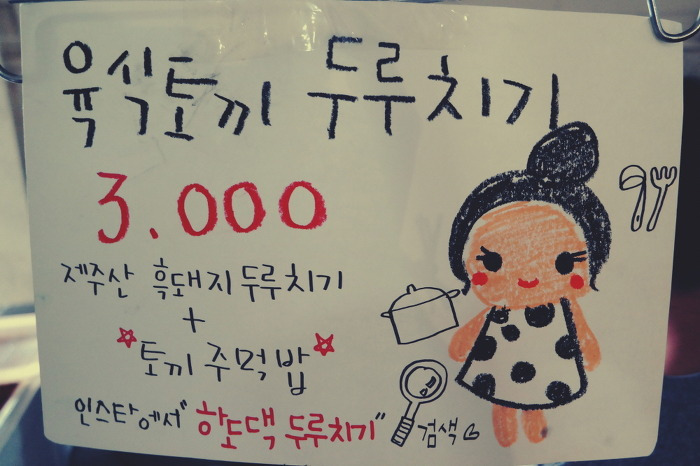 육식토끼 두루치기
3.000
제주산 흑돼지 두루치기
+
토끼 주먹밥
인스타에서 "항도댁 두루치기" 검색